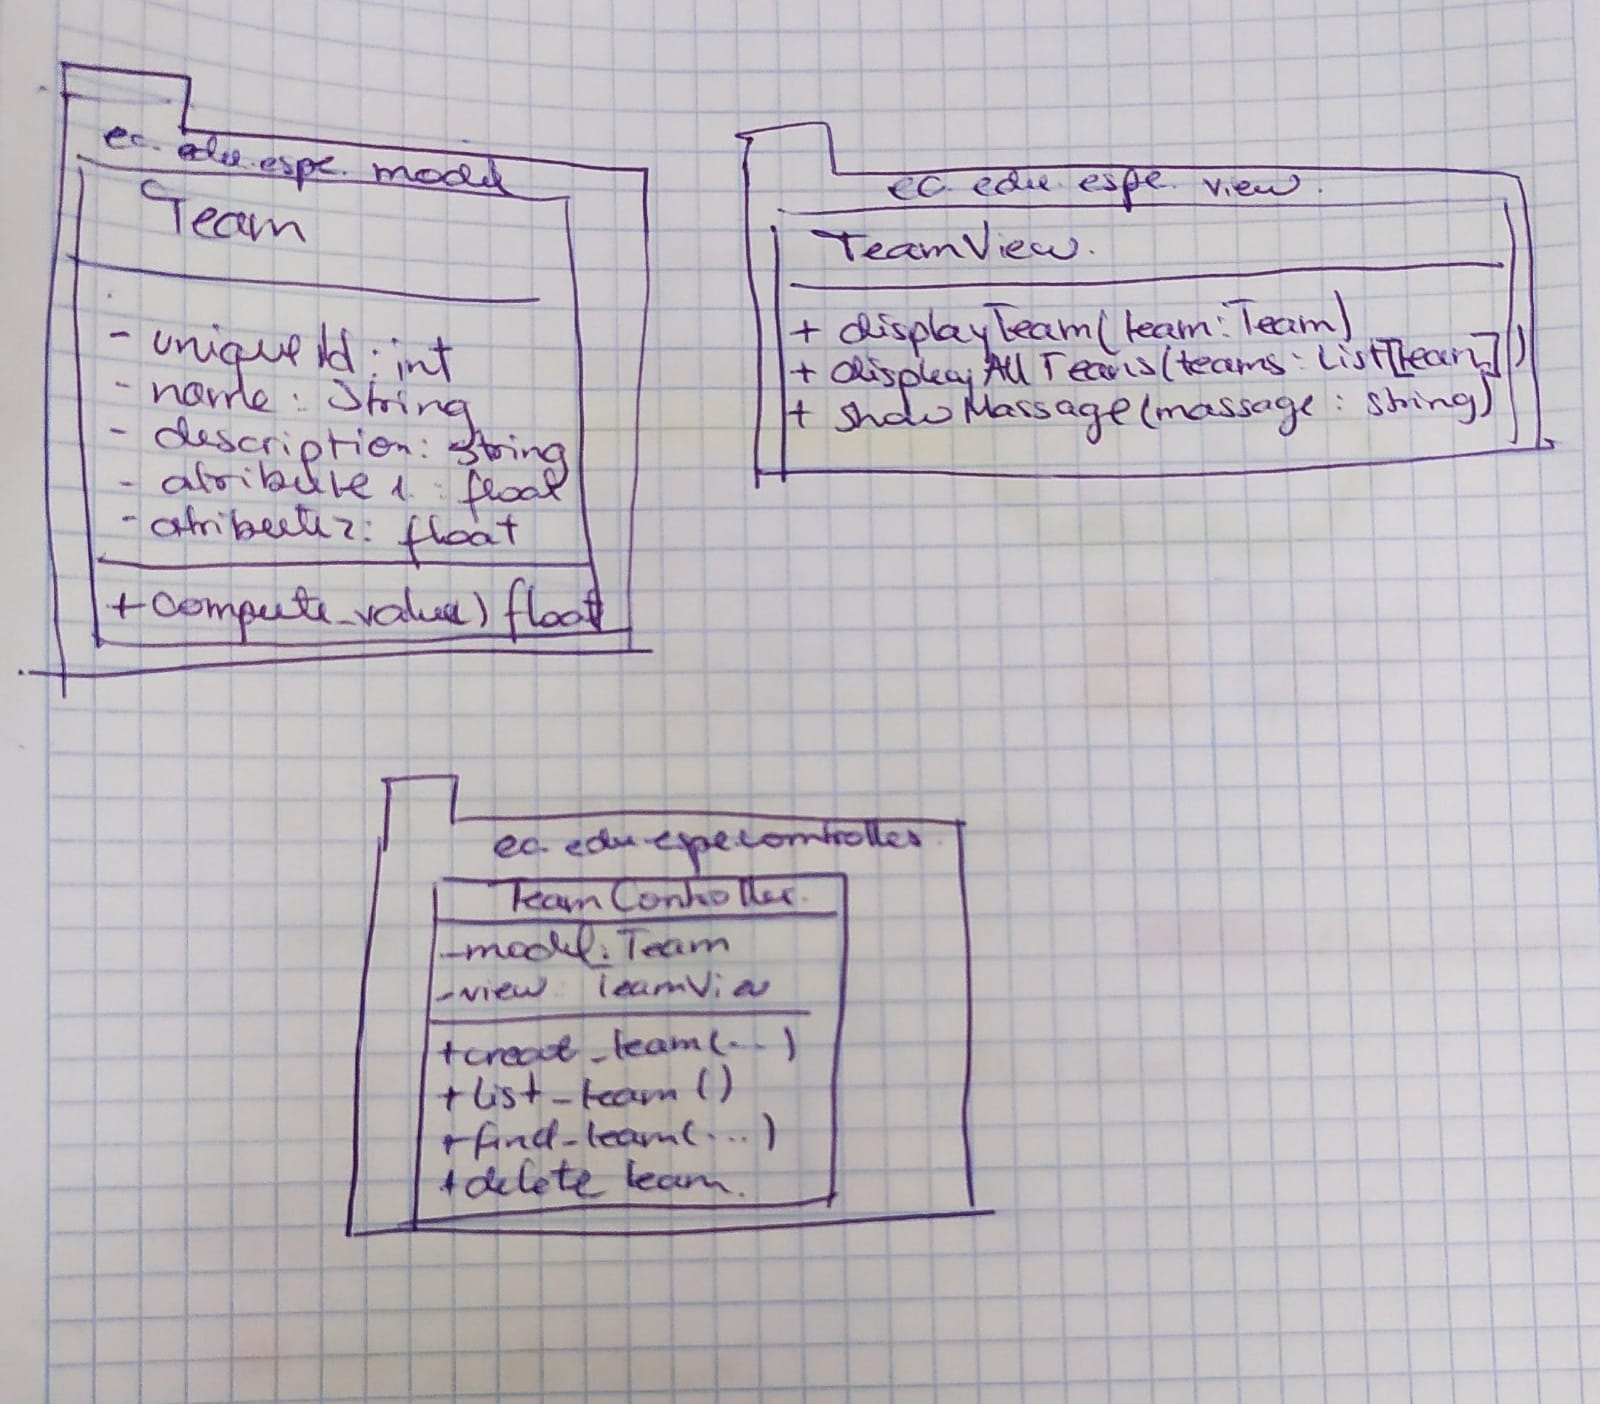 ec. edu.espe. model
Team
- unique Id : int
- name : String
- description : string
- atribute 1 : float
- atribute 2 : float
+ compute_value) float
ec. edu. espe. view.
TeamView.
+ displayTeam(team: Team)
+ display All Teams(teams : List[team])
+ show Massage(massage : string)
ec. edu. espe controller.
Team Controller.
- model: Team
- view TeamView
+ creat_team(...)
+ list_team ()
+ find_team(...)
+ delete team.